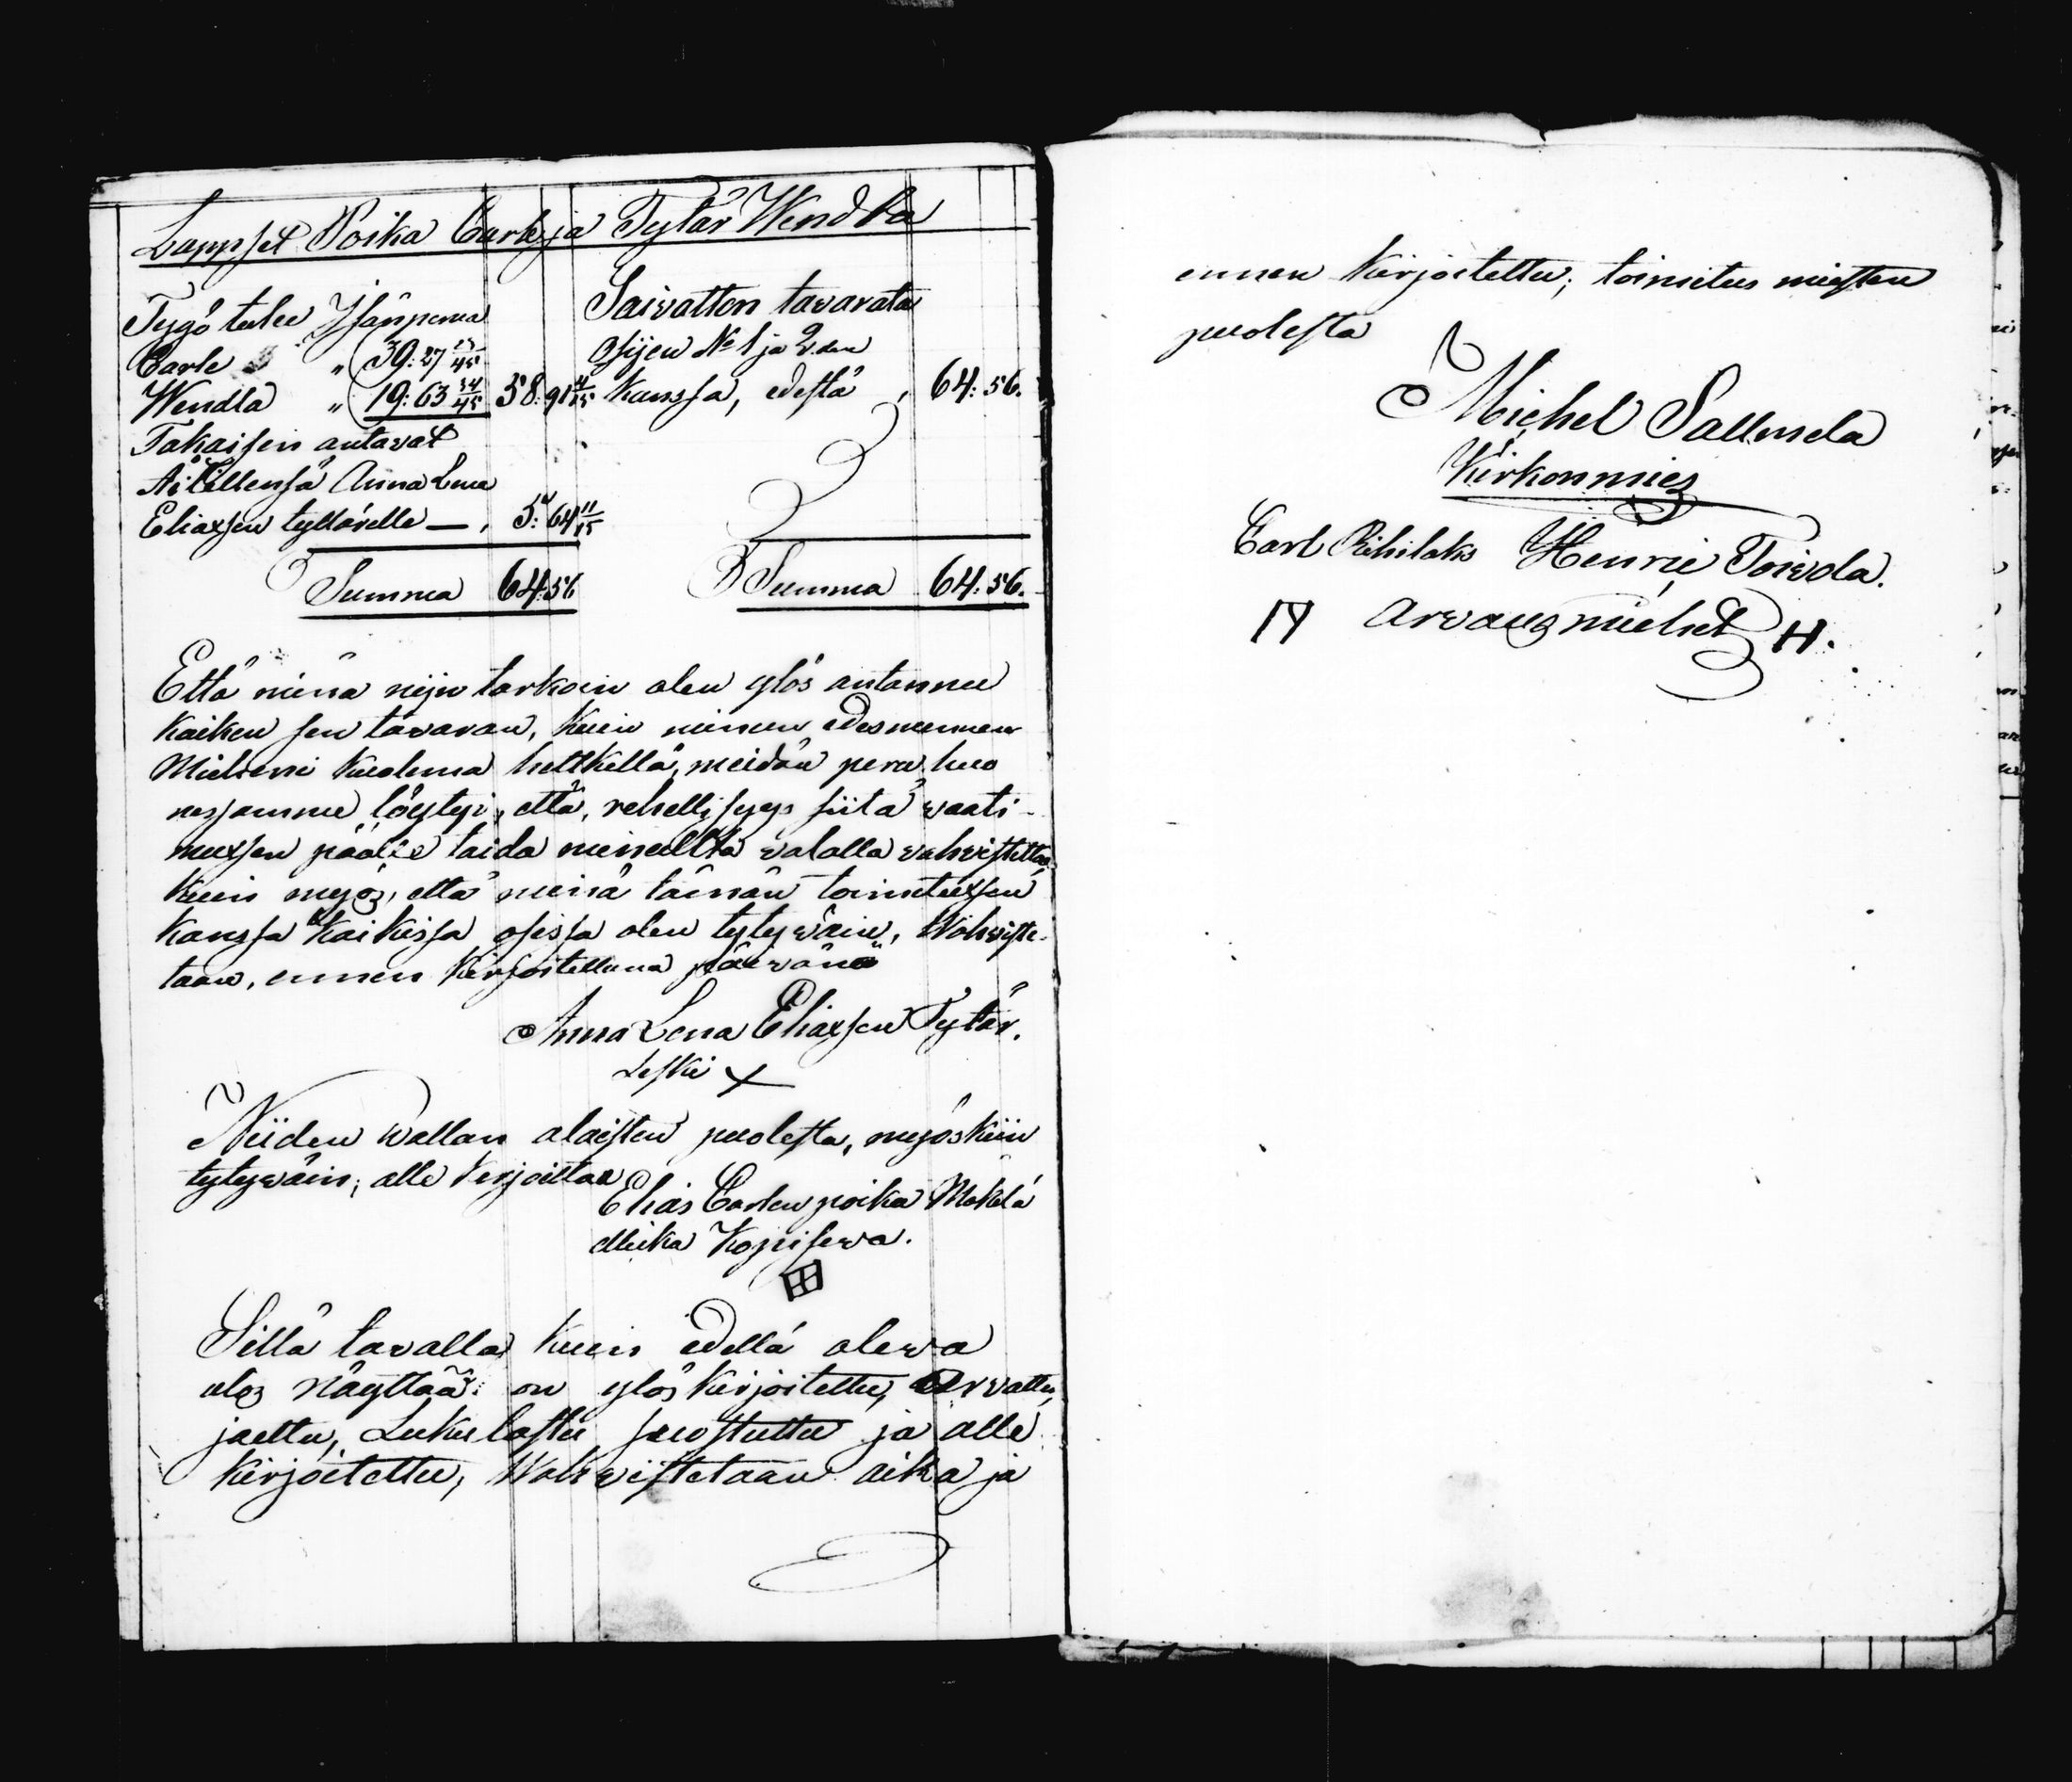 Lappset Poika Carle ja Tytär Wendla
Tygö tulee Isänperua
Carle " 39: 27 23/45
Wendla " 19: 63 34/45 58: 91 4/15
Takaisin antavat
Äitillensä Anna Lena
Eliaxsen tyttärelle — , 5: 64 11/15
Summa 64: 56
Saivatten tavarata
osijen No 1 ja 2.den
kanssa, edestä , 64: 56.
Summa 64: 56.
Että minä nijn tarkoin olen ylös antannu
kaiken sen tavaran, kuin minun edesmennen
Mieheni kuolema hettkellä, meidän peru huo
nesamme löytyi, että, rehellisyys siitä waati-
muxsen päälle taida minulta walalla wahvistettaa
kuin myös, että minä tämän toimituxsen
kanssa kaikissa osissa olen tytywäin, Wahwiste-
taan, ennen kirjoitettuna päiwänä
Anna Lena Eliaxsen Tytär.
Leski +
Niiden wallan alaisten puolesta, myöskiin
tytywäin; alle kirjoittaa
Elias Carlen poika Mäkelä
Sillä tavalla kuin edellä olewa
ulos näyttää: on ylös kirjoitettu, Arwattu,
jaettu, Luku lastu suostuttu ja alle
kirjoitettu, Wahwistetaan aika ja
ennen kirjoitettu; toimitus miesten
puolesta
Michel Sallmela
Kirkonmies
Carl Rihilaks Henric Toivola.
Arwausmiehet H.